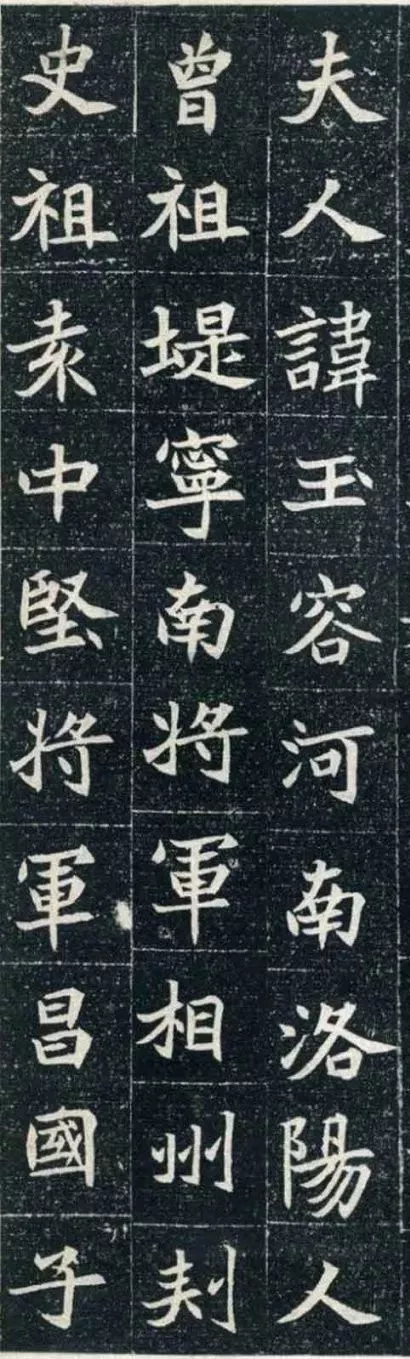 夫人諱玉容河南洛陽人
曾祖堤寧南將軍相州刾
史祖袁中堅將軍昌國子